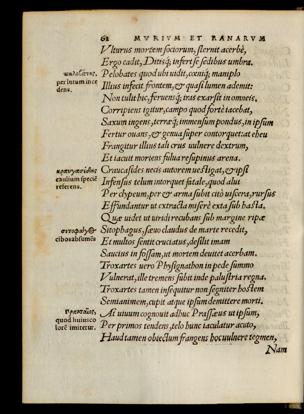 62 MVRIVM ET RANARVM
Vlturus mortem sociorum, sternit acerbè,
Ergo cadit, Ditisq; infert se sedibus umbra.
πηλοβάτης, Pelobates quod ubi uidit, cœniq; maniplo
per lutum ince Illius infecit frontem, & quasi lumen ademit:
dens. Non tulit hic, feruensq; iras exarsit in omneis.
Corripiens igitur, campo quod fortè iacebat,
Saxum ingens, terræq; immensum pondus, in ipsum
Fertur ouans, & genua super contorquet: at eheu
Frangitur illisu tali crus uulnere dextrum,
Et iacuit mortens fulua resupinus arena.
Craucasides necis autorem uestigat, & ipsi
Infensus telum intorquet fatale, quod alui
referens. Per clypeum, per & arma subit citò uiscera, rursus
Effunduntur ut extracta miserè exta sub hasta.
Quæ uidet ut uiridi recubans sub margine ripæ
Sitophagus, sæuo claudus de marte recedit,
cibos absumēs Et multos sentit cruciatus, desilit imam
Saucius in fossam, ut mortem deuitet acerbam.
Troxartes uero Physignathon in pede summo
Vulnerat, ille tremens subit inde palustria regna.
Troxartes tamen insequitur non segniter hostem
Semianimem, cupit atque ipsum demittere morti.
At uiuum cognouit adhuc Prassæus ut ipsum,
quod huiusco Per primos tendens, telo hunc iaculatur acuto,
lorē imitetur. Haud tamen obiectum frangens hoc uulnere tegmen,
Nam